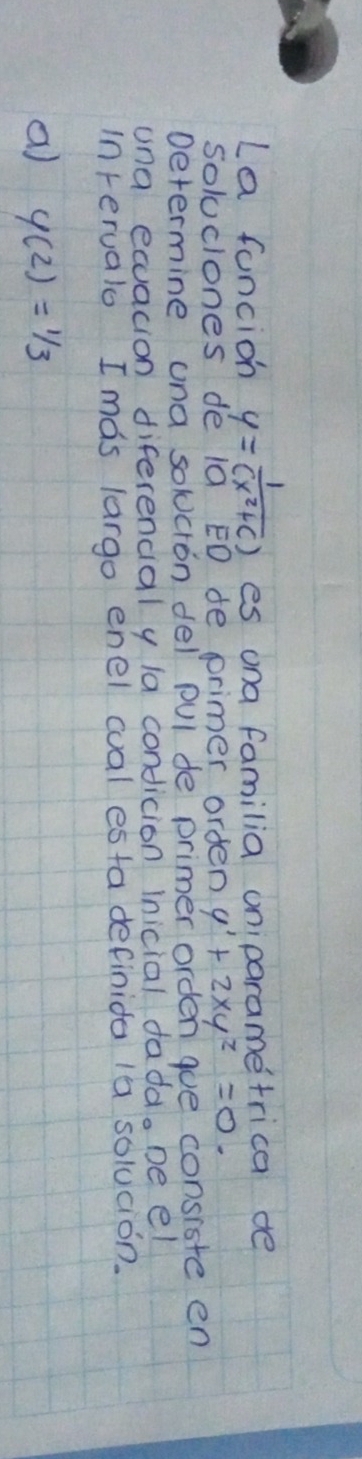 La función y = 1/(x²+c) es una familia uniparamétrica de
soluciones de la ED de primer orden y' + 2xy² = 0.
Determine una solución del pvi de primer orden que consiste en
una ecuacion diferencial y la condicion inicial dada. De el
intervalo I más largo enel cual esta definida la solución.
a) y(2) = 1/3